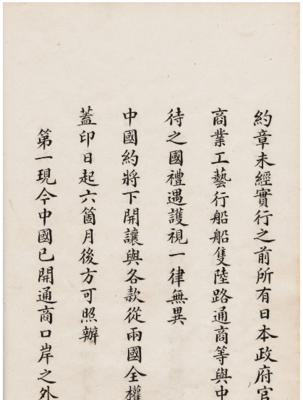 約章未經實行之前所有日本政府官
商業工藝行船船隻陸路通商等與中
待之國禮遇護視一律無異
中國約將下開讓與各款從兩國全權
蓋印日起六箇月後方可照辦
第一現今中國已開通商口岸之外